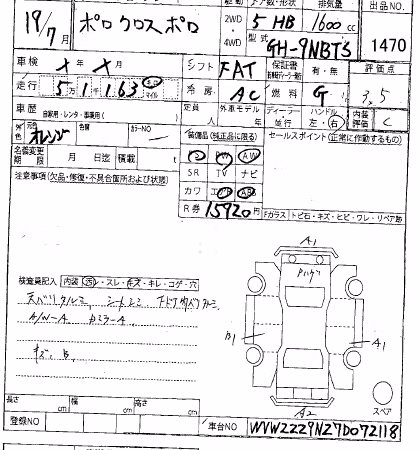 駆動 ドア数・形状 排気量 出品NO
19/7月 ポロ クロス ポロ 2WD ・ 4WD 5 HB 1600cc
型式 GH-9NBTS 1470
車検 × 月 シフト FAT 保証書 有・無 評価点
走行 5万1千163 マイル 冷房 AC 燃料 G 3,5
車歴 自家用・レンタ・事業用( ) 定員 人 外車モデル 年 ディーラー・並行 ハンドル 左・右 内装評価 C
外色 元色 オレンジ 色替 カラーNO 装備品(純正品に限る) セールスポイント(正常に作動するもの)
名義変更期限 月 日迄 積載 t PW AW
SR TV ナビ
注意事項(欠品・修復・不具合箇所および状態) カワ エアB ABS
R券 15920円 Fガラス トビ石・キズ・ヒビ・ワレ・リペア跡
A1
検査員記入 内装 汚・スレ・キズ・キレ・コゲ・穴
天バリタルミ、シートシミ
A/W-A ドミラーA、
キズ、B、
B1 A1
A2 スペア
長さ cm 幅 cm 高さ cm
登録NO 車台NO WVWZZZ9NZ7D072118